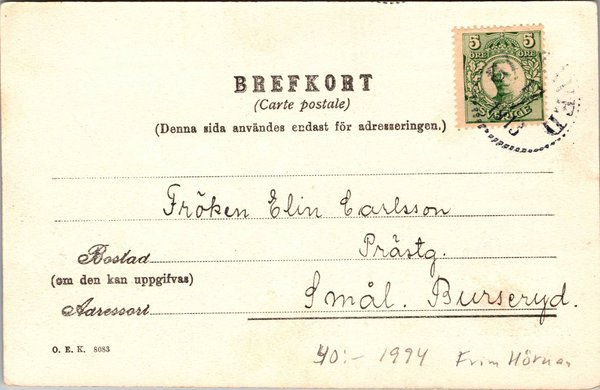 5 5
ÖRE ÖRE
BREFKORT
(Carte postale)
(Denna sida användes endast för adresseringen.)
Fröken Elin Carlsson
Prästg.
Bostad
(om den kan uppgifvas)
Smål. Burseryd.
Adressort
O. E. K. 8083
40:- 1994 From